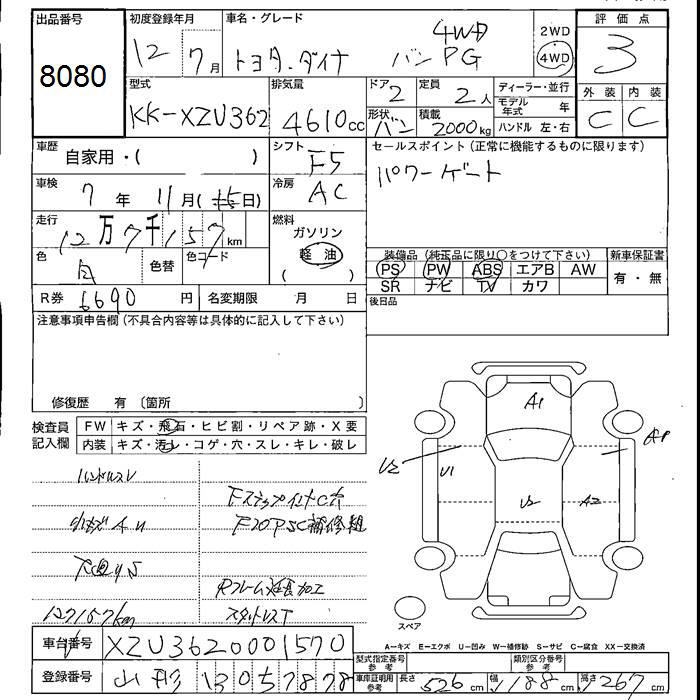 出品番号 初度登録年月 車名・グレード 2WD 評価点
8080 12 7月 トヨタ・ダイナ バン 4WD PG 4WD 3
型式 排気量 ドア 2 定員 2人 ディーラー・並行 外装 内装
KK-XZU362 4610cc 形状 バン 積載 2000kg モデル年式 年 C C
ハンドル 左・右
車歴 自家用・( ) シフト F5 セールスポイント(正常に機能するものに限ります)
車検 7年 11月( 日) 冷房 AC パワーゲート
走行 12万7千157km 燃料 ガソリン
色 白 色替 色コード 軽油
( )
装備品(純正品に限り〇をつけて下さい) 新車保証書
PS PW ABS エアB AW 有・無
SR ナビ TV カワ
R券 6690円 名変期限 月 日 後日品
注意事項申告欄(不具合内容等は具体的に記入して下さい)
修復歴 有(箇所 )
検査員記入欄 FW キズ・飛石・ヒビ割・リペア跡・X要
内装 キズ・汚レ・コゲ・穴・スレ・キレ・破レ
A1
U2 U1 U2 A2
ハンドルスレ
小キズAU
補修
加工
127157km スタットレスT
スペア
A-キズ E-エクボ U-凹み W-補修跡 S-サビ C-腐食 XX-交換済
車台番号 XZU3620001570 型式指定番号 参考 類別区分番号 参考
登録番号 山形 130 57878 車庫証明用 参考 長さ 526cm 幅 188cm 高さ 267cm